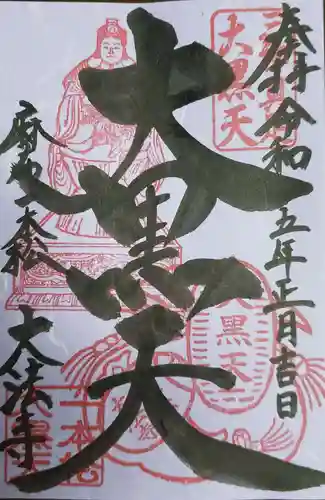 奉拝 令和五年正月吉日
大黒天
大黒天
大黒天
麻布一本松 大法寺